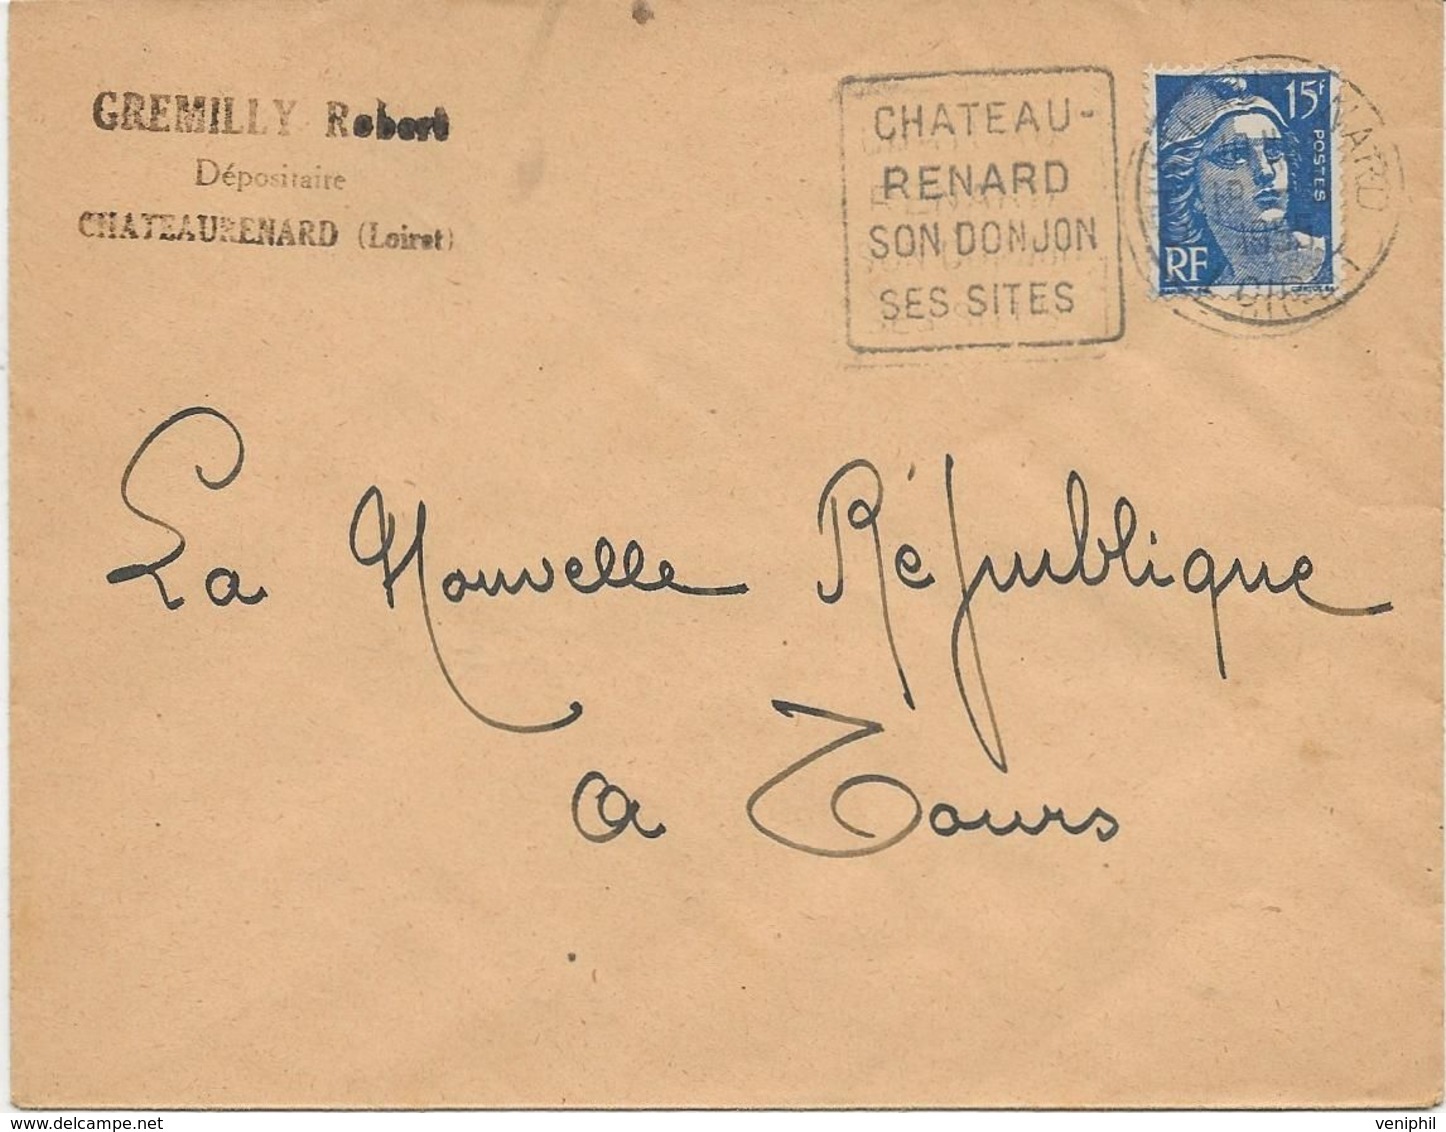 GREMILLY Robert
Dépositaire
CHATEAURENARD (Loiret)
CHATEAU-
RENARD
SON DONJON
SES SITES
15f
POSTES
RF
1955
La Nouvelle République
a Tours
veniphil